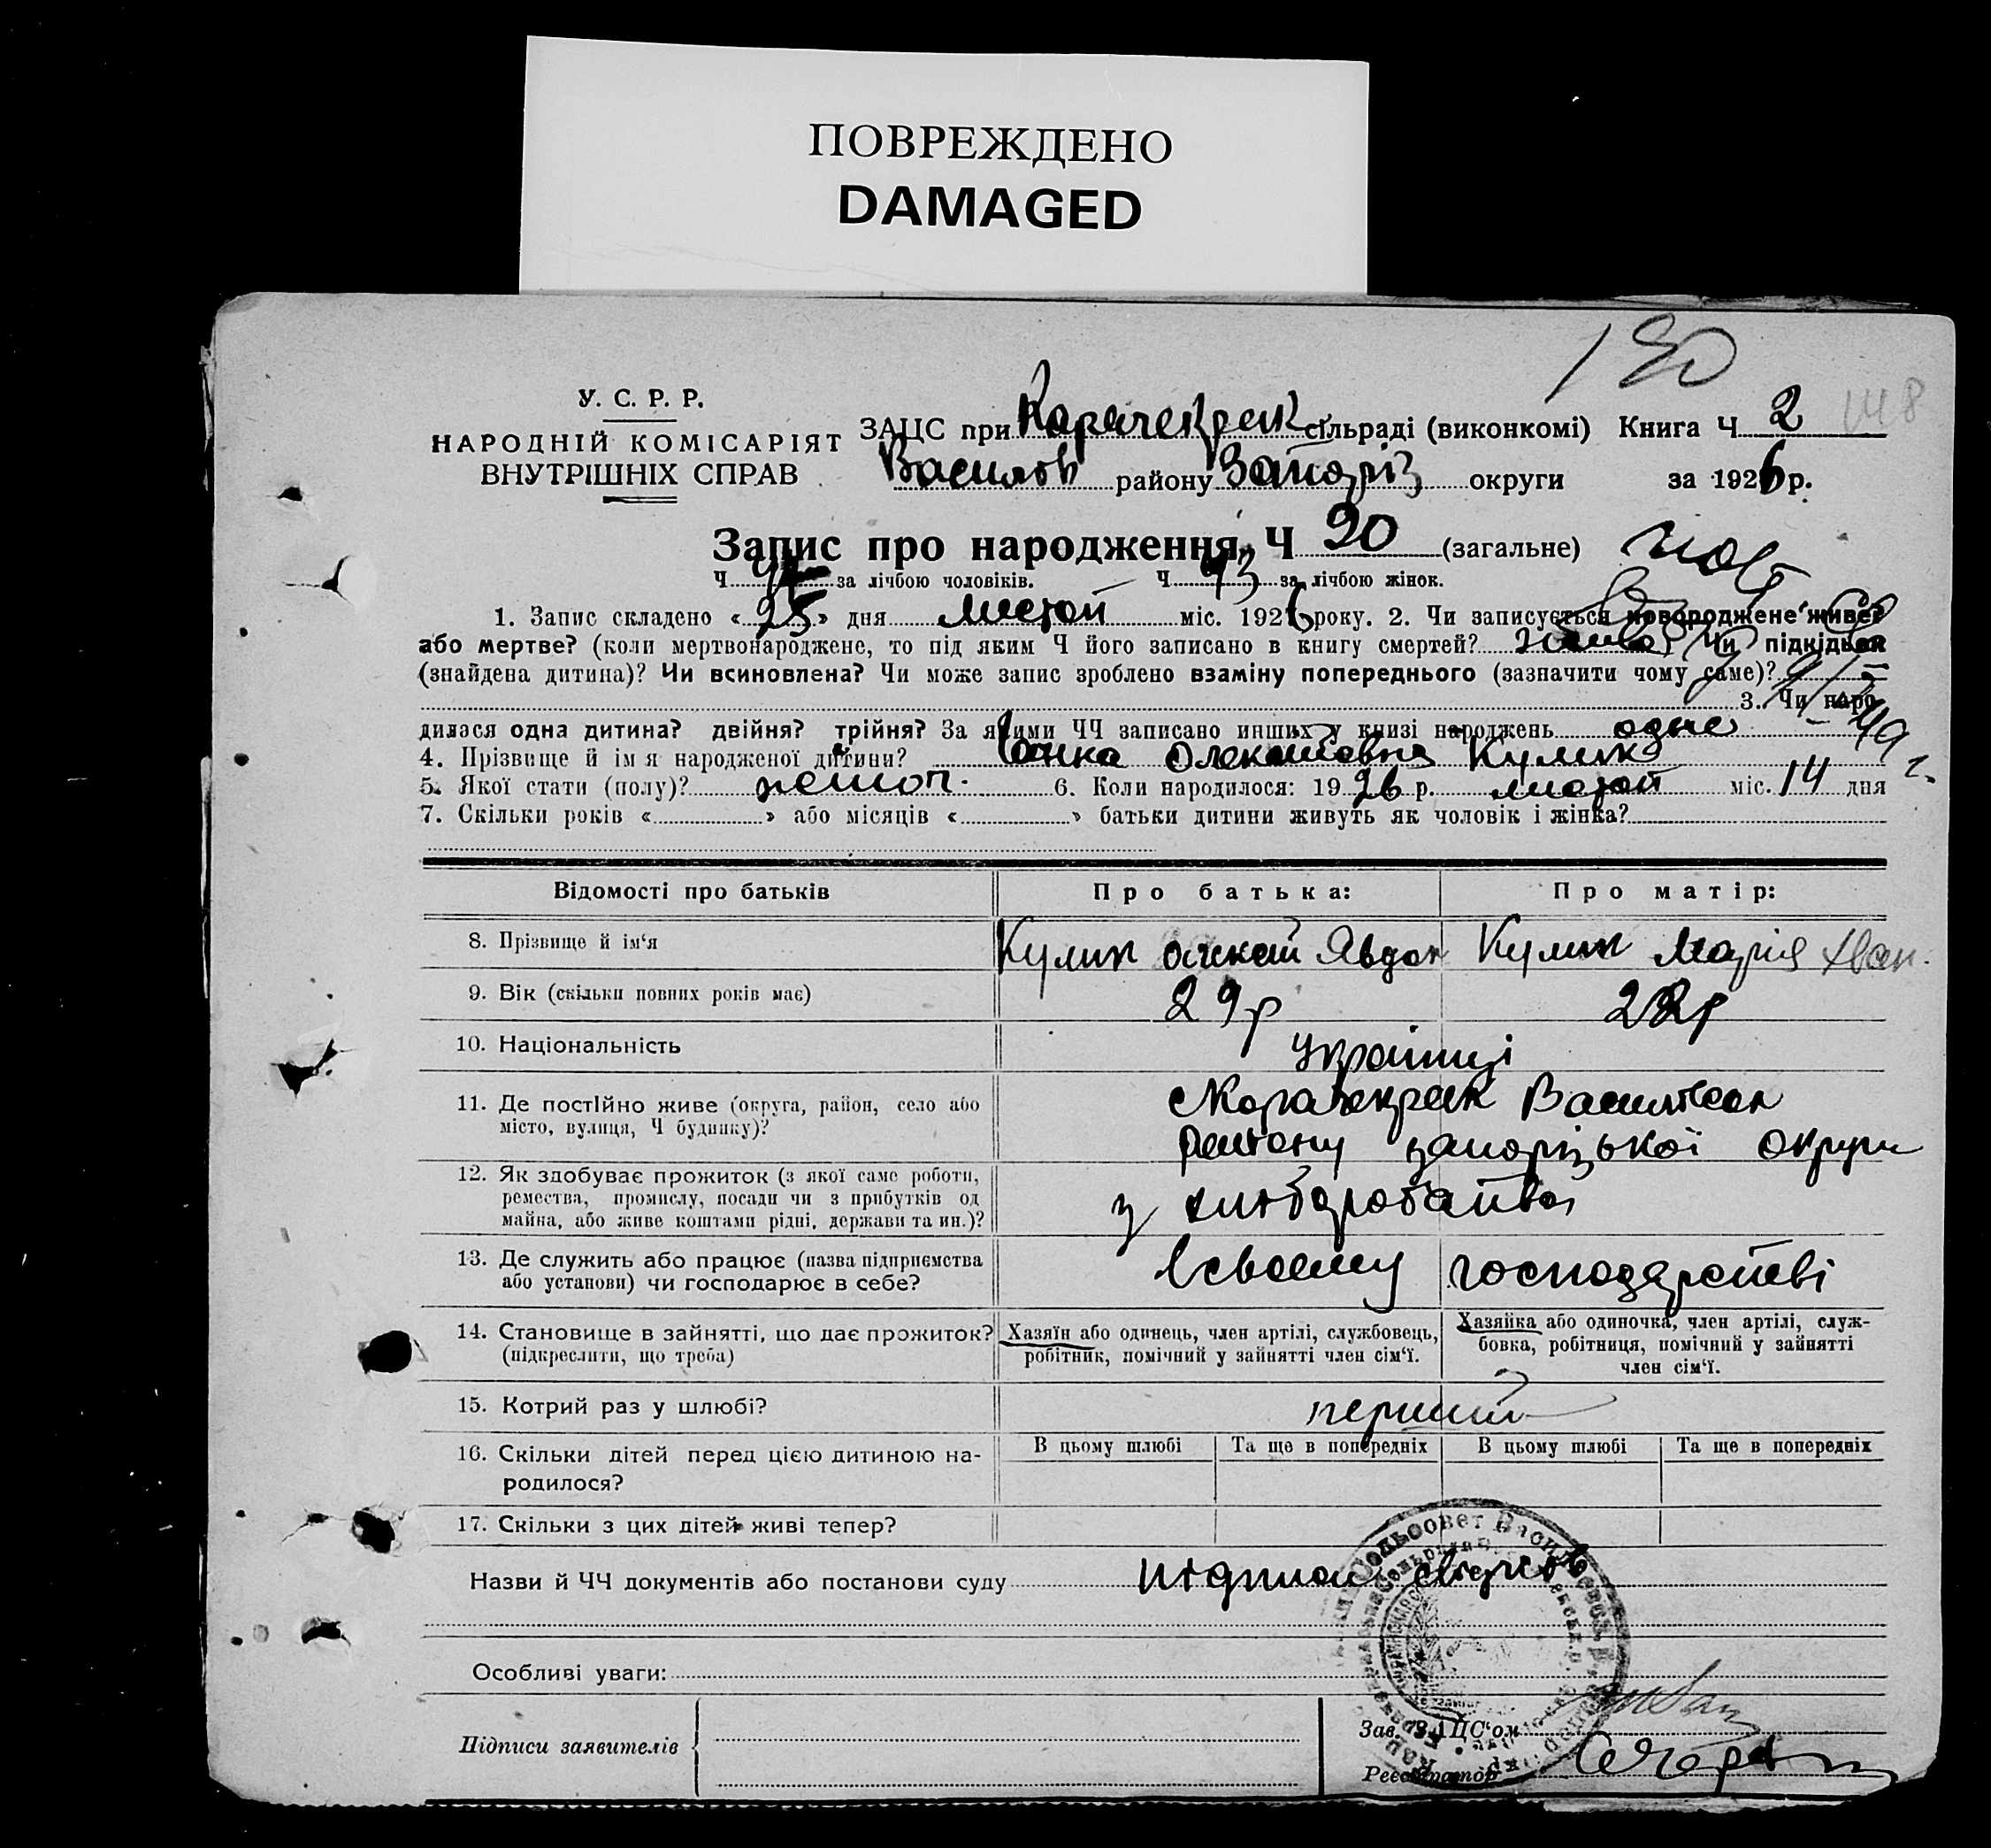 ПОВРЕЖДЕНО
DAMAGED
190
У. С. Р. Р.
НАРОДНІЙ КОМІСАРІЯТ
ВНУТРІШНІХ СПРАВ
ЗАЦС при Карачекрак сільраді (виконкомі) Книга Ч 2 148
Василів району Запоріз округи за 1926 р.
Запис про народження, Ч 90 (загальне)
Ч 47 за лічбою чоловіків. Ч 43 за лічбою жінок.
1. Запис складено « 25 » дня лютой міс. 1926 року. 2. Чи записується новороджене живе?
або мертве? (коли мертвонароджене, то під яким Ч його записано в книгу смертей? живе Чи підкідьок
(знайдена дитина)? Чи всиновлена? Чи може запис зроблено взаміну попереднього (зазначити чому саме)?
3. Чи наро
дилася одна дитина? двійня? трійня? За якими ЧЧ записано инших у книзі народжень одне
4. Прізвище й ім я народженої дитини? Ганка Олексіївна Кулик
5. Якої стати (полу)? жіноч. 6. Коли народилося: 19 26 р. лютой міс. 14 дня
7. Скільки років « » або місяців « » батьки дитини живуть як чоловік і жінка?
Відомості про батьків Про батька: Про матір:
8. Прізвище й ім‘я Кулик Олексій Явдок Кулик Марія Іван.
9. Вік (скільки повних років має) 29 р 22 р
10. Національність Українці
11. Де постійно живе (округа, район, село або
місто, вулиця, Ч будинку)?
Карачекрак Василівськ
району запорізької округи
12. Як здобуває прожиток (з якої саме роботи,
ремества, промислу, посади чи з прибутків од
майна, або живе коштами рідні, держави та ин.)?
з хліборобства
13. Де служить або працює (назва підприємства
або установи) чи господарює в себе?
в своему господарстві
14. Становище в зайнятті, що дає прожиток?
(підкреслити, що треба)
Хазяїн або одинець, член артілі, службовець,
робітник, помічний у зайнятті член сім‘ї.
Хазяйка або одиночка, член артілі, служ-
бовка, робітниця, помічний у зайнятті
член сім‘ї.
15. Котрий раз у шлюбі? перший
16. Скільки дітей перед цією дитиною на-
родилося?
В цьому шлюбі Та ще в попередніх В цьому шлюбі Та ще в попередніх
17. Скільки з цих дітей живі тепер?
Назви й ЧЧ документів або постанови суду підписи свідків
Особливі уваги:
Підписи заявителів
Зав. ЗАЦС‘ом
Реєстратор